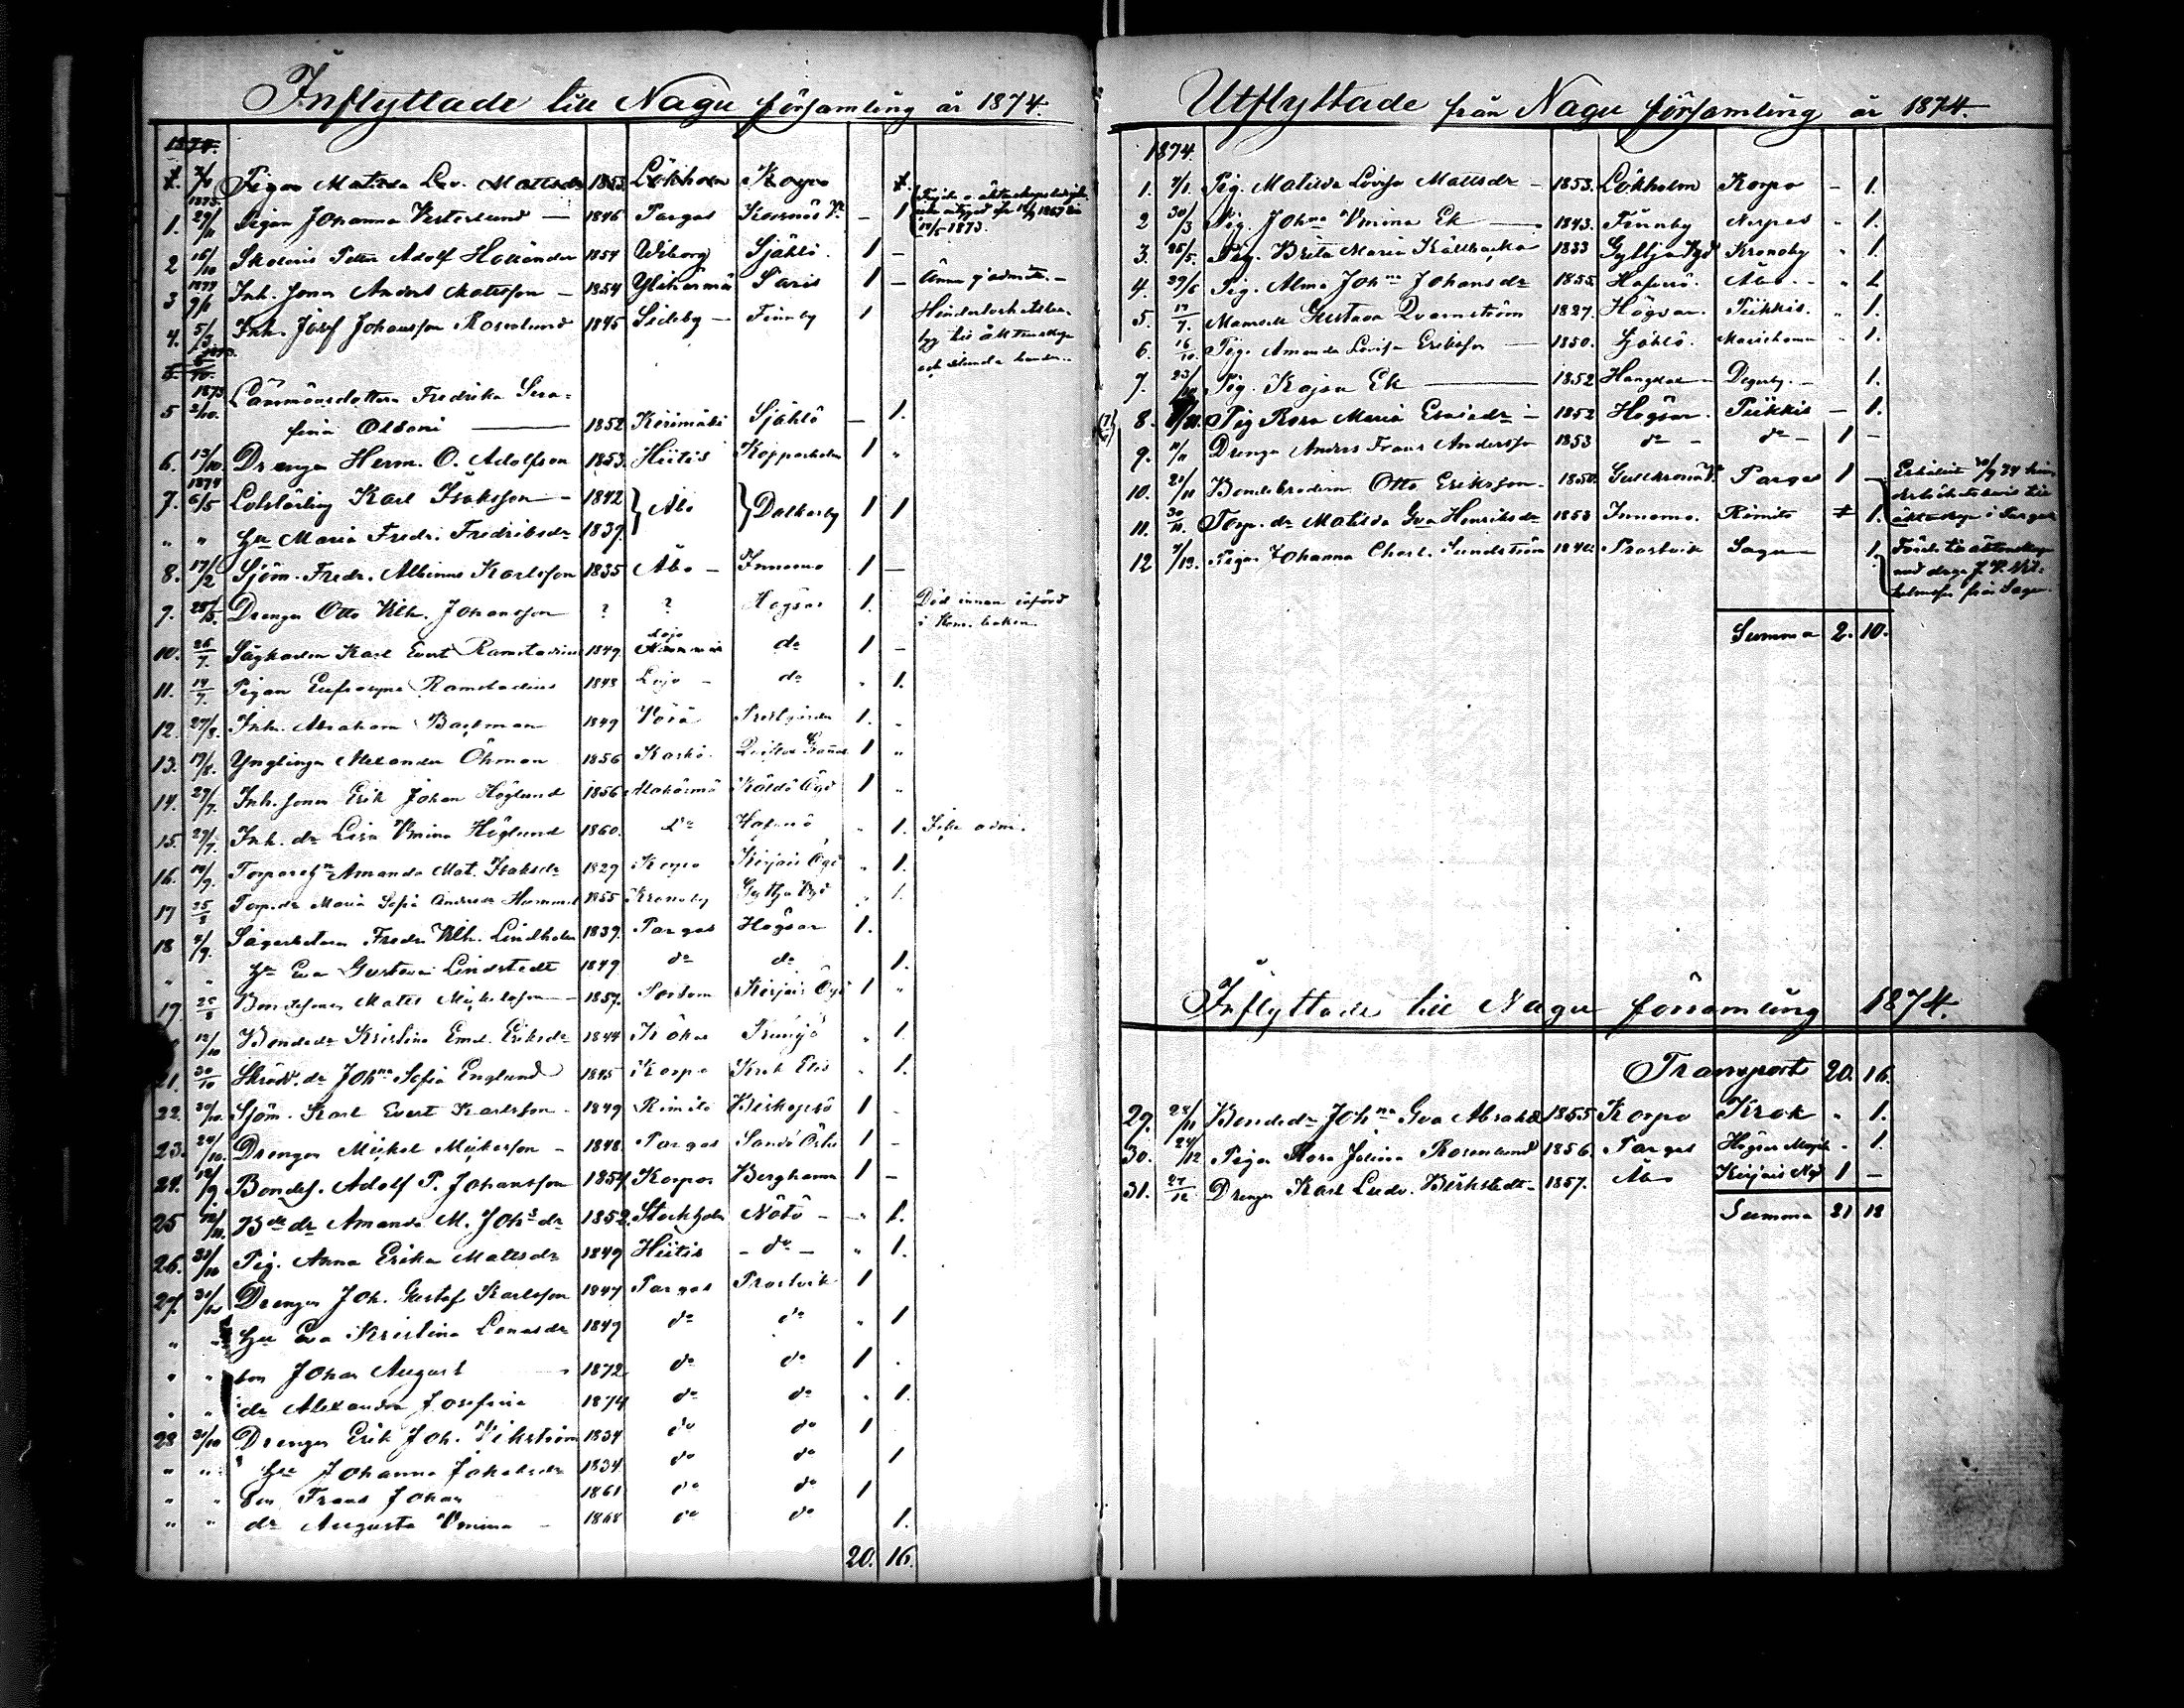 Inflyttade till Nagu församling år 1874.
1874.
1. 7/1 Pigan Matilda Lov. Mattsdr 1853. Lökholm Korpo 1.
1873.
1. 29/11 Pigan Johanna Vesterlund — 1846 Pargas — 1
2 16/10 Skolevis Petter Adolf Hollender 1854 Wiborg Sjählö. 1 —
1874
3 9/1 Inh. sonen Anders Matsson — 1854 Ylihärmä Saris 1 — Ännu ej admitt. —
4. 5/3 Inh. Josef Johansson Rosenlund 1845 Sideby — Finnby 1 Hinderlöshetsbe-
tyg till äktenskap
1873
5 2/10. Länsmansdottern Fredrika Sera-
fina Olsoni — 1852 Kerimäki Sjählö — 1.
6. 13/10. Drengen Herm. O. Adolfsson 1853. Hiitis Kopparholm 1 "
1874
7. 6/5 Lotslärling Karl Isaksson — 1842 } Åbo } Dalkarby 1 1
" " Hu Maria Fredr. Fredriksdr 1839.
8. 17/2 Sjöm. Fredr. Albinus Karlsson 1835 Åbo — Innamo 1 —
9. 28/5. Drengen Otto Vilh. Johansson ? ? Högsar 1. Död innan införd
i Kom. boken.
10. 26/7. Sågkarlen Karl Evert Ramstadius 1849 Lojo do 1 —
11. 14/7. Pigan Eufrosyne Ramstadius 1848 Lojo — do " 1.
12. 27/8. Inh. Abraham Backman 1849 Vörå Prestgården 1. "
13. 19/8. Ynglingen Alexander Öhman 1856 Kaskö. 1 "
14. 27/7. Inh. sonen Erik Johan Höglund 1856 Alahärmä Käldö Ögd 1 "
15. 27/7. Inh. dr Lisa Vmina Höglund 1860. do " 1. Icke adm.
16. 14/9. Amanda Mat. Isaksdr 1829 Korpo Kirjais Ögd " 1.
17 25/8 Torp.dr Maria Sofia Andersdr Hummel 1855 Kronoby Gyttja Vgd " 1.
18 4/9. Sågarbetaren Fredr. Vilh. Lindholm 1839. Pargas Högsar 1.
" " Hu Eva Gustava Lindstedt 1849 do do 1.
19. 25/8 Bondesonen Matts Mickelsson — 1857. Kirjais Ögd 1 "
12/10 Bondedr Kristina Emel. Eriksdr 1844 Kökar " 1.
21. 30/10 Johna Sofia Englund 1845 Korpo " 1.
22. 30/10. Sjöm. Karl Evert Karlsson — 1849 Rimito Biskopsö 1 —
23. 24/10. Drengen Mickel Mickelsson — 1848. Pargas 1 —
24. 12/9. Bondes. Adolf P. Johansson 1854 Korpo Berghamn 1 —
25 Bde dr Amanda M. Johsdr 1852. Stockholm Nötö — " 1.
26. 31/10 Pig. Anna Erika Mattsdr 1849 Hiitis — do — " 1.
27. 31/10 Drengen Joh. Gustaf Karlsson 1847 Pargas Prostvik 1
" " Hu Eva Kristina Lenasdr 1849 do do " 1
" " son Johan August 1872 do do 1 .
" " dr Alexandra Josefina 1874 do do " 1.
28 31/10 Drengen Erik Joh. Vikström 1834 do do 1
" " Hu Johanna Jakobsdr 1834 do do 1
" " son Frans Johan 1861 do do 1
" " dr Augusta Vmina — 1868 do do 1.
20. 16.
Utflyttade från Nagu församling år 1874.
1874.
1. 7/1. Pig. Matilda Lovisa Mattsdr — 1853. Lökholm Korpo — 1.
2 30/3 Pig. Johna Vmina Ek — 1843. Finnby Nerpes " 1.
3. 25/5. Pig. Brita Maria Källbacka 1833 Gyttja Vgd Kronoby " 1.
4. 29/6 Pig. Alma Johna Johansdr 1855. Åbo — " 1
5. 17/7. Mamsell Gustava Qvarnström 1827. Högsar. Piikkis. " 1.
6. 16/10. Pig. Amanda Lovisa Eriksson — 1850. Sjählö. Mariehamn " 1.
7. 23/10 Pig. Kajsa Ek — 1852 Degerby. — 1.
8. Pig Rosa Maria — 1852 Högsar. Piikkis — 1.
9. Drengen Anders Frans Andersson 1853 do — do — 1 —
10. 20/11 Bondebrodern Otto Eriksson. 1850. Pargas 1 — Erhållit 20/9 74 hin-
derlöshetsbevis till
äktenskap i Pargas
11. 30/11. Torp. dr Matilda Eva Henriksdr 1853 Innamo. Rimito 1.
12 Pigan Johanna Charl. Sundström 1840. Prostvik Sagu — 1.
med dreng J. V. Vil-
helmsson från Sagu.
Summa 2. 10.
Inflyttade till Nagu församling 1874.
Transport 20. 16.
29. 28/11 Bondedr Johna Eva Abrahdr 1855 Korpo Krok " 1.
30. 24/12 Pigan Rosa Josefina Rosenlund 1856. Pargas " 1.
31. 27/12 Drengen Karl Ludv. Birkstedt — 1857. Åbo Kirjais Ngd 1 —
Summa 21 18